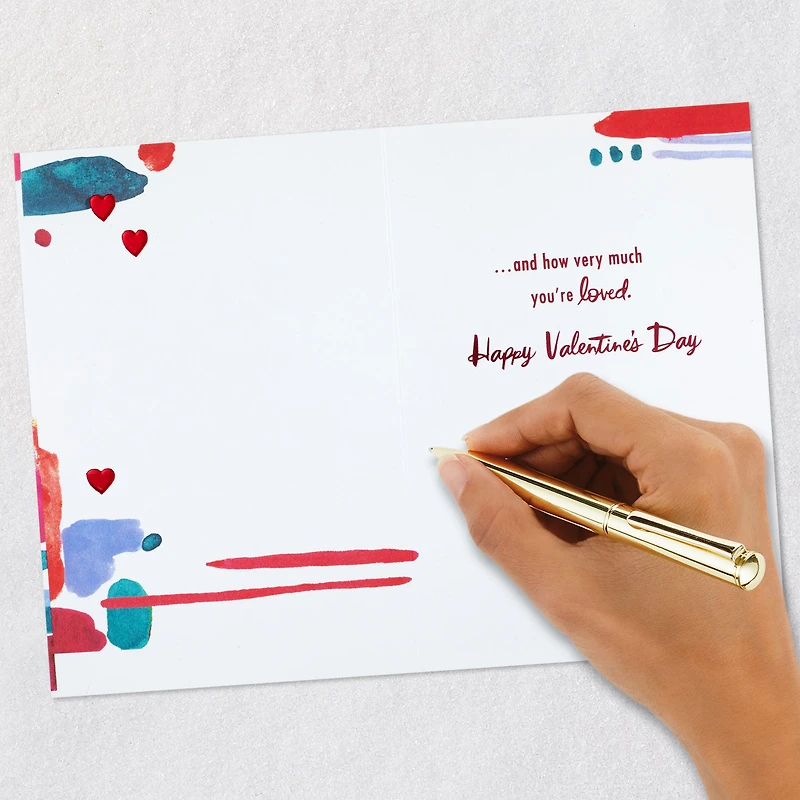 ...and how very much
you're loved.
Happy Valentine's Day